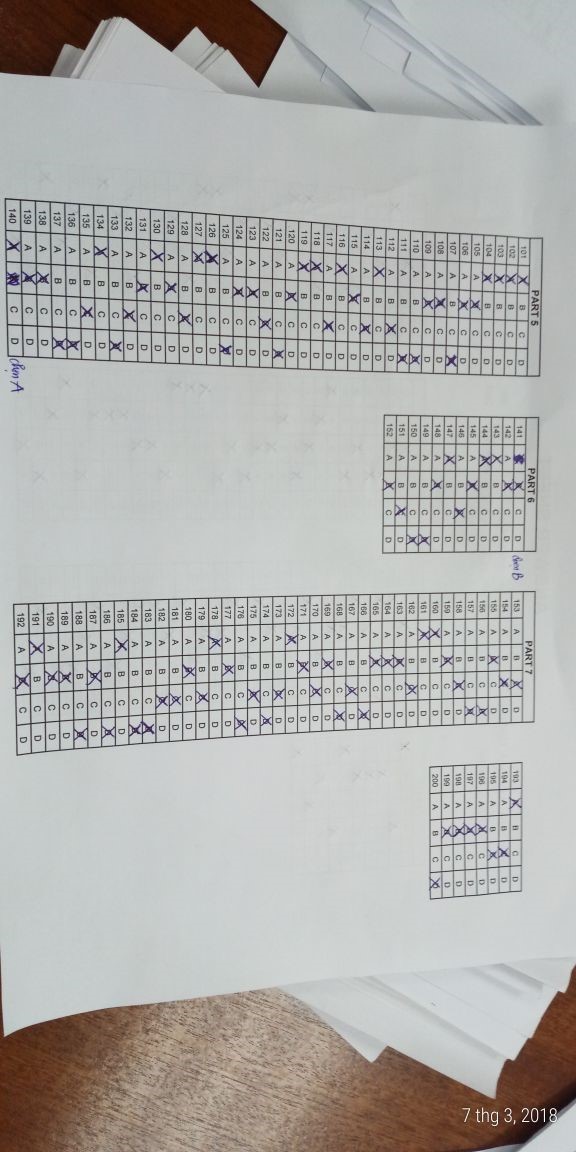 PART 5
101 A B C D
102 A B C D
103 A B C D
104 A B C D
105 A B C D
106 A B C D
107 A B C D
108 A B C D
109 A B C D
110 A B C D
111 A B C D
112 A B C D
113 A B C D
114 A B C D
115 A B C D
116 A B C D
117 A B C D
118 A B C D
119 A B C D
120 A B C D
121 A B C D
122 A B C D
123 A B C D
124 A B C D
125 A B C D
126 A B C D
127 A B C D
128 A B C D
129 A B C D
130 A B C D
131 A B C D
132 A B C D
133 A B C D
134 A B C D
135 A B C D
136 A B C D
137 A B C D
138 A B C D
139 A B C D
140 A B C D chọn A
PART 6
141 A B C D chọn B
142 A B C D
143 A B C D
144 A B C D
145 A B C D
146 A B C D
147 A B C D
148 A B C D
149 A B C D
150 A B C D
151 A B C D
152 A B C D
PART 7
153 A B C D
154 A B C D
155 A B C D
156 A B C D
157 A B C D
158 A B C D
159 A B C D
160 A B C D
161 A B C D
162 A B C D
163 A B C D
164 A B C D
165 A B C D
166 A B C D
167 A B C D
168 A B C D
169 A B C D
170 A B C D
171 A B C D
172 A B C D
173 A B C D
174 A B C D
175 A B C D
176 A B C D
177 A B C D
178 A B C D
179 A B C D
180 A B C D
181 A B C D
182 A B C D
183 A B C D
184 A B C D
185 A B C D
186 A B C D
187 A B C D
188 A B C D
189 A B C D
190 A B C D
191 A B C D
192 A B C D
193 A B C D
194 A B C D
195 A B C D
196 A B C D
197 A B C D
198 A B C D
199 A B C D
200 A B C D
7 thg 3, 2018